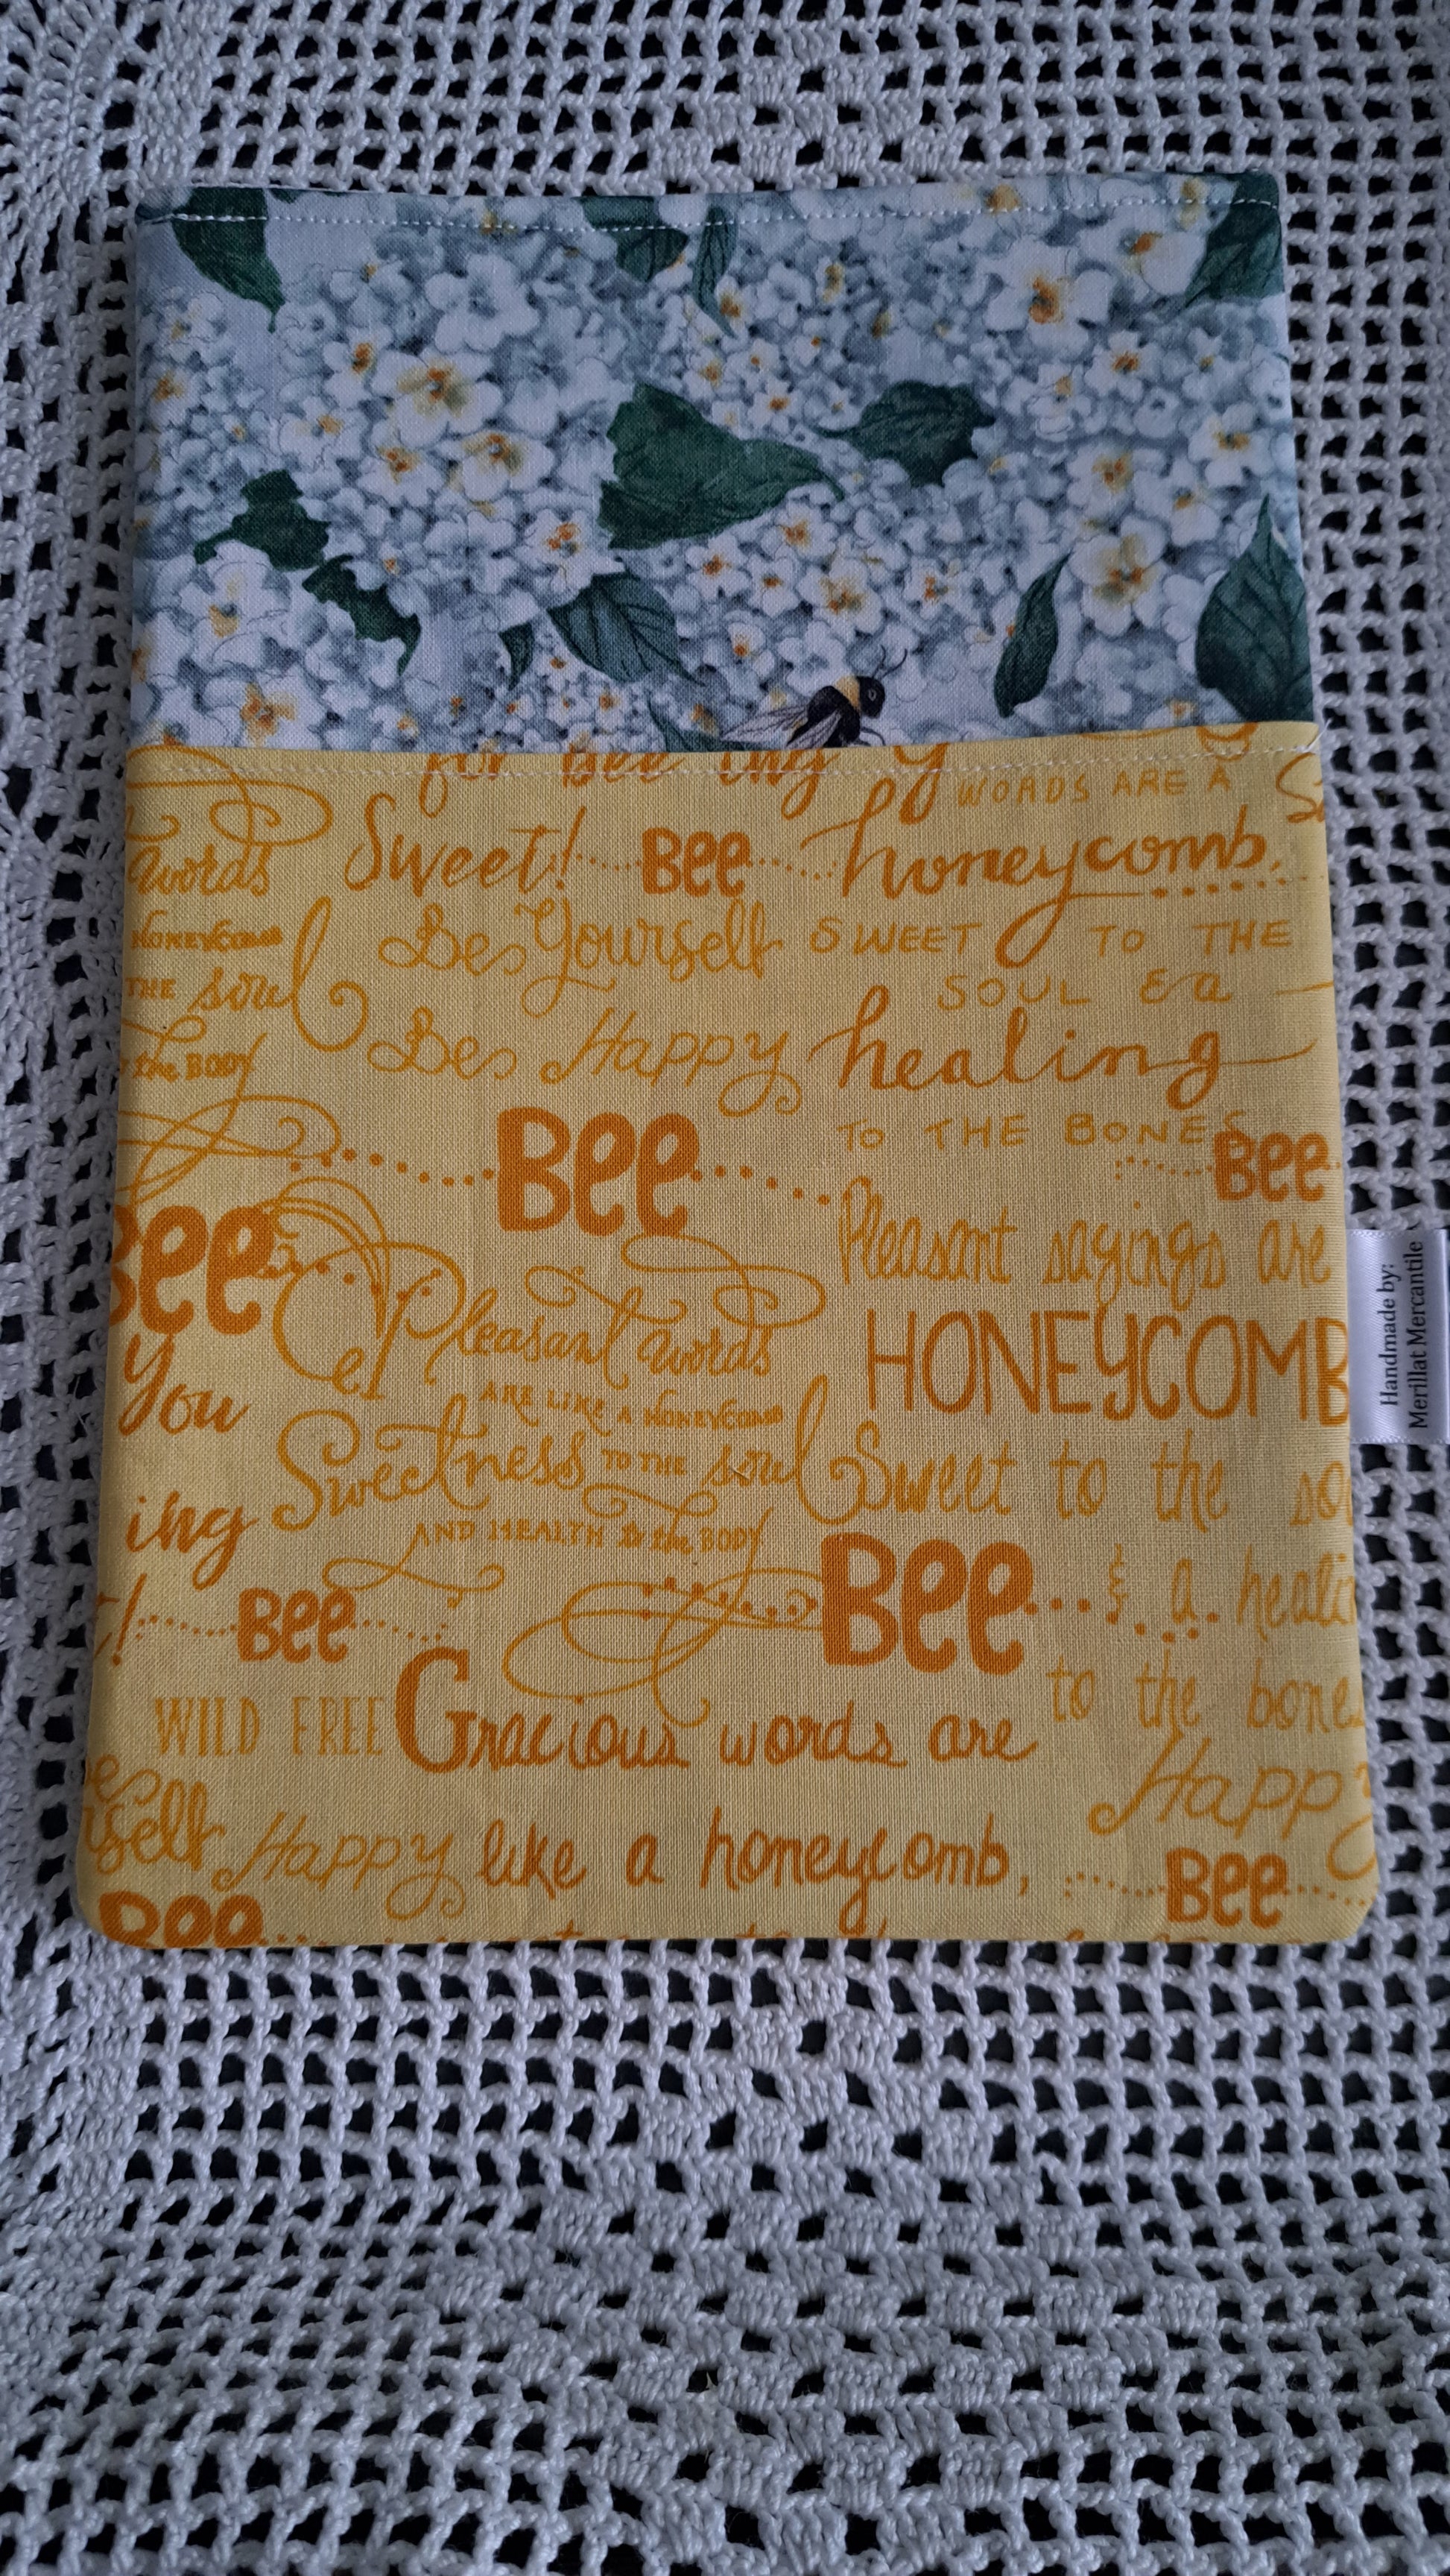 for Bee ing y
WORDS ARE A
words Sweet! Bee honeycomb,
HONEYCOMB Bee Yourself SWEET TO THE
THE soul SOUL & a
the BODY Bee Happy healing
TO THE BONES
Bee Bee
Bee Pleasant sayings are
you Pleasant words HONEYCOMB
ARE LIKE A HONEYCOMB
Sweetness TO THE soul Sweet to the
ing AND HEALTH to the BODY
! Bee Bee & a
WILD FREE Gracious words are to the bones
Happy
Happy like a honeycomb,
Bee Bee
Handmade by:
Merillat Mercantile